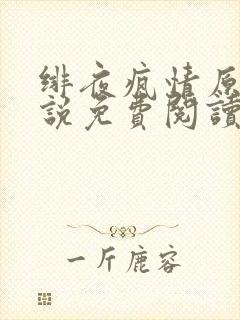 緋夜瘋情原
說免費閱讀
一斤鹿容